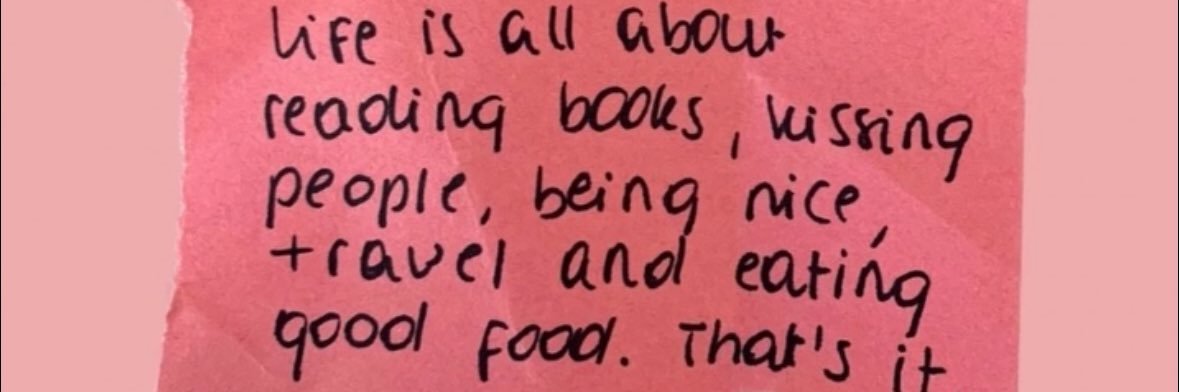 Life is all about
reading books, kissing
people, being nice,
travel and eating
good food. That's it